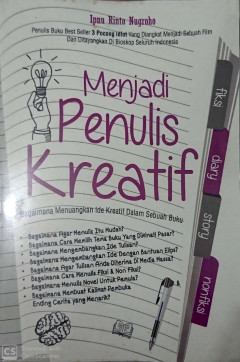 Ipnu Rinto Nugroho
Penulis Buku Best Seller 3 Pocong Idiot Yang Diangkat Menjadi Sebuah Film
Dan Ditayangkan Di Bioskop Seluruh Indonesia
Menjadi
Penulis
Kreatif
Bagaimana Menuangkan Ide Kreatif Dalam Sebuah Buku
fiksi
diary
story
nonfiksi
• Bagaimana Agar Menulis Itu Mudah?
• Bagaimana Cara Memilih Tema Buku Yang Diminati Pasar?
• Bagaimana Mengembangkan Ide Tulisan?
• Bagaimana Mengembangkan Ide Dengan Bantuan
• Bagaimana Agar Tulisan Anda Diterima Di Media Massa?
• Bagaimana Cara Menulis Fiksi & Non Fiksi?
• Bagaimana Menulis Novel Untuk Pemula?
• Bagaimana Membuat Kalimat Pembuka
Ending Cerita yang Menarik?
CS